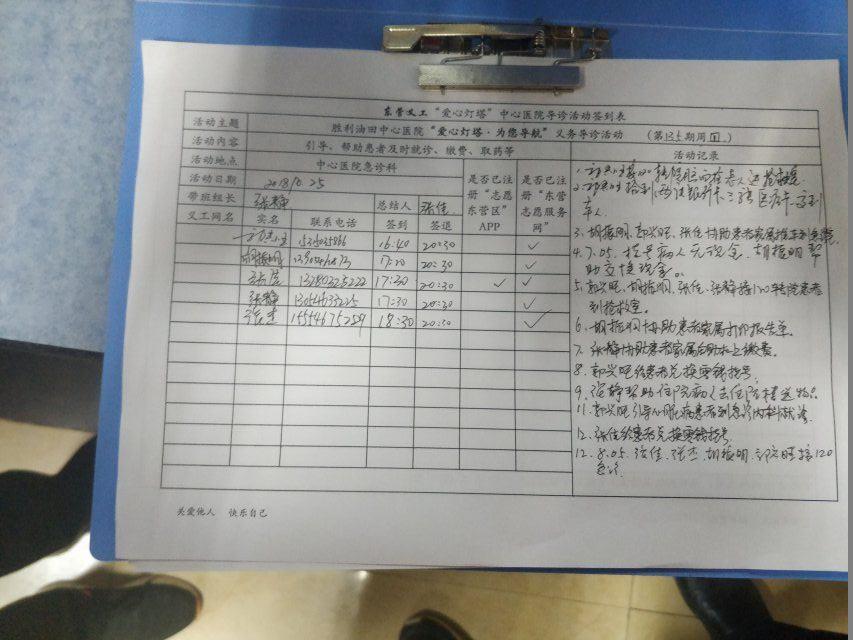 东营义工“爱心灯塔”中心医院导诊活动签到表
活动主题 胜利油田中心医院“爱心灯塔·为您导航”义务导诊活动 (第 期周四)
活动内容 引导、帮助患者及时就诊、缴费、取药等
活动地点 中心医院急诊科
活动日期 2018/10.25
带班组长 张静 总结人 张佳
是否已注册“志愿东营区”APP
是否已注册“东营志愿服务网”
义工网名 实名 联系电话 签到 签退
16:40 20:30 ✓
胡振明 17:20 20:30 ✓
张佳 13280325222 17:30 20:30 ✓ ✓
张静 17:30 20:30 ✓
张杰 15554675259 18:30 20:30 ✓
活动记录
3. 胡振明、郭兴旺、张佳协助患者家属推车到
4. 7.05. 挂号病人无现金,胡振明帮
助交换现金。
5. 郭兴旺、胡振明、张佳、张静接120转院患者
到抢救室。
6. 胡振明协助患者家属打印报告单。
7. 张静协助患者家属自助机上缴费。
8. 郭兴旺给患者兑换零钱挂号。
9. 张静帮助住院病人去住院楼送物品
11. 郭兴旺引导心脏病患者到急诊内科就诊
12. 张佳给患者兑换零钱挂号
12. 8.05. 张佳、张杰、胡振明、郭兴旺接120
急诊
关爱他人 快乐自己